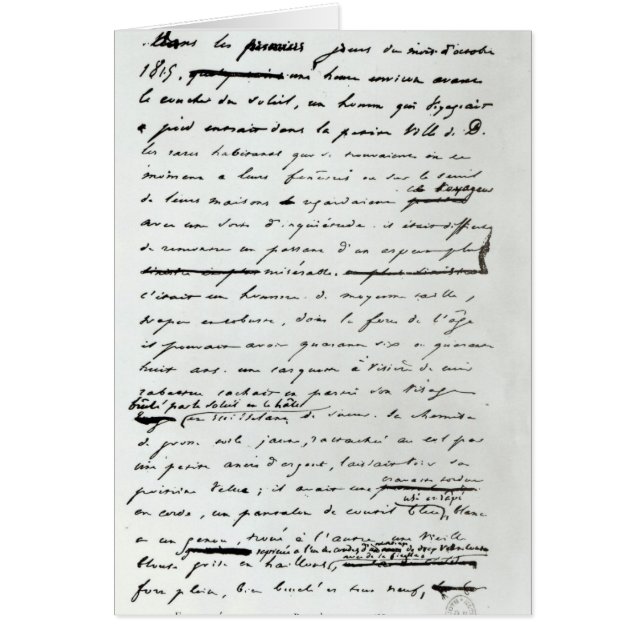 Dans les premiers jours du mois d'octobre
1815, une heure environ avant
le coucher du soleil, un homme qui voyageait
à pied entrait dans la petite ville de D.
les rares habitants qui se trouvaient en ce
moment à leurs fenêtres ou sur le seuil
de leurs maisons regardaient ce voyageur
avec une sorte d'inquiétude. il était difficile
de rencontrer un passant d'un aspect plus
misérable.
c'était un homme de moyenne taille,
trapu et robuste, dans la force de l'âge
il pouvait avoir quarante six ou quarante
huit ans. une casquette à visière de cuir
rabattue cachait en partie son visage
brûlé par le soleil et le hâle
et ruisselant de sueur. sa chemise
de grosse toile jaune, rattachée au col par
une petite ancre d'argent, laissait voir sa
poitrine velue ; il avait une cravate tordue
en corde, un pantalon de coutil bleu, usé et râpé, blanc
à un genou, troué à l'autre, une vieille
blouse grise en haillons, rapiécée à l'un des coudes d'un morceau de drap vert cousu avec de la ficelle
fort plein, bien bouclé et tout neuf,